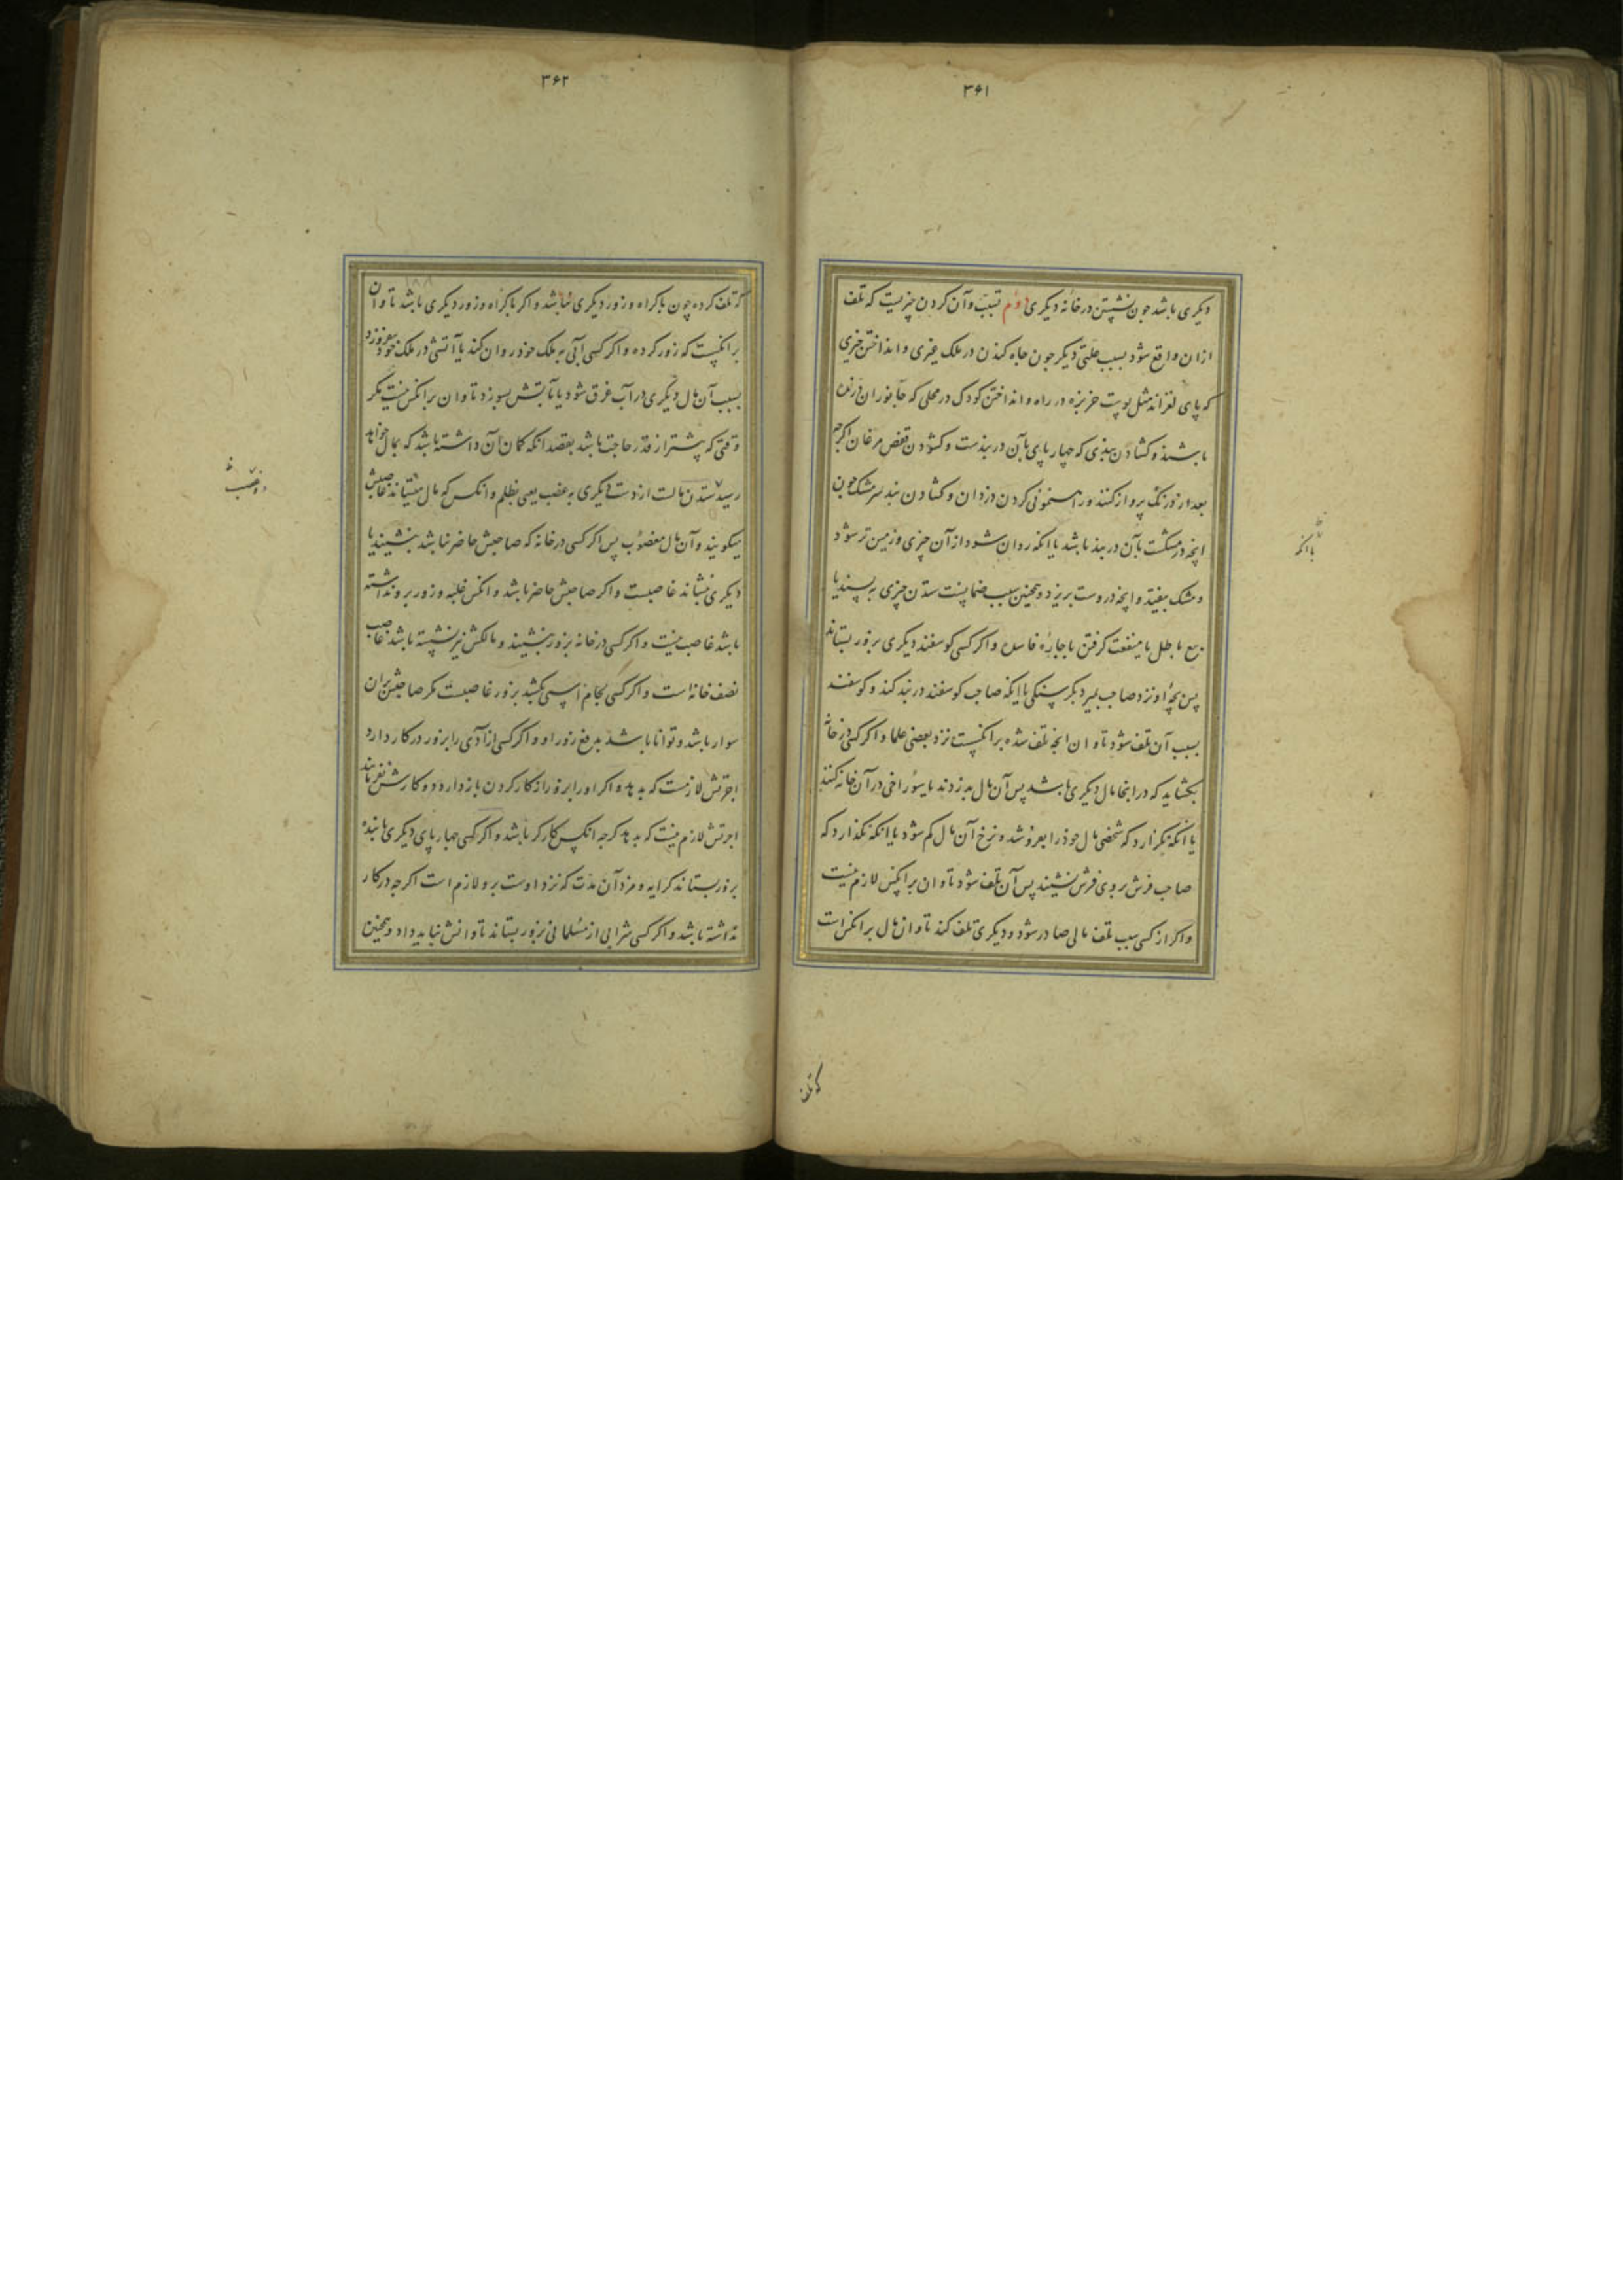 ۳۶۱
دیکری باشد جون نشستن در خانه دیکری دوم تسبیب وآن کردن چیزیست که تلف
ازان واقع شود بسبب علتی دیکر جون جاه کندن در ملک غیری و انداختن چیزی
که پای لغزاند مثل پوست خربزه در راه و انداختن کودک در محلی که جانوران درنده
باشند و کشادن بندی که چهارپای بآن در بندست و کشودن قفص مرغان اکرچه
بعد از درنک پرواز کنند و راهنمونی کردن دزدان و کشادن بند سر مشک چون
انچه در مشکست بآن در بند باشد یا انکه روان شود ازآن چیزی و زمین تر شود
و مشک بیفتد و انچه دروست بریزد و همچنین سبب ضمانست ستدن چیزی به بسندیا
بیع باطل یا منفعت کرفتن باجاره فاسد و اکر کسی کوسفند دیکری بزور بستاند
پس بچه او نزد صاحب بمیرد بکرسنکی یا اینکه صاحب کوسفند در بند کند و کوسفند
بسبب آن تلف شود تاوان انچه تلف شده برانکسست نزد بعضی علما و اکر کسی در خانه
بکشاید که در انجا مال دیکری باشد پس آن مال بدزدند یا سوراخی در آن خانه کنند
یا انکه نکذارد که شخصی مال خود را بفروشد و نرخ آن مال کم شود یا انکه نکذارد که
صاحب فرش بر روی فرش نشیند پس آن تلف شود تاوان برانکس لازم نیست
واکر از کسی سبب تلف مالی صادر شود و دیکری تلف کند تاوان مال برانکس است
یا انکه
که تلف
۳۶۲
که تلف کرده چون باکراه و زور دیکری نباشد و اکر باکراه و زور دیکری باشد تاوان
برانکسست که زور کرده و اکر کسی آبی به ملک خود روان کند یا آتشی در ملک خود بیفروزد
بسبب آن مال دیکری در آب غرق شود یا بآتش بسوزد تاوان برانکس نیست مکر
وقتی که پیشتر از قدر حاجت باشد بقصد انکه کمان آن داشته باشد که بمال خواهد
رسید ستدن مالست از دست دیکری به غضب یعنی بظلم و انکس که مال میستاند غاصبش
میکویند وآن مال مغصوب پس اکر کسی در خانه که صاحبش حاضر نباشد بنشیند یا
دیکری نشاند غاصبست و اکر صاحبش حاضر باشد و انکس غلبه و زور برو نداشته
باشد غاصب نیست و اکر کسی در خانه بزور بنشیند و مالکش نیز نشسته باشد غاصب
نصف خانه است و اکر کسی لجام اسپی بکشد بزور غاصبست مکر صاحبش بران
سوار باشد و توانا باشد بدفع زور او و اکر کسی ازادی را بزور در کار دارد
اجرتش لازمست که بدهد و اکر اورا بزور از کار کردن باز دارد و کارش نفرماید
اجرتش لازم نیست که بدهد کرچه انکس کارکر باشد و اکر کسی چهارپای دیکری یا بنده
بزور بستاند کرایه و مزد آن مدت که نزد اوست برو لازم است اکرچه در کار
نداشته باشد و اکر کسی شرابی از مسلمانی بزور بستاند تاوانش نباید داد و همچنین